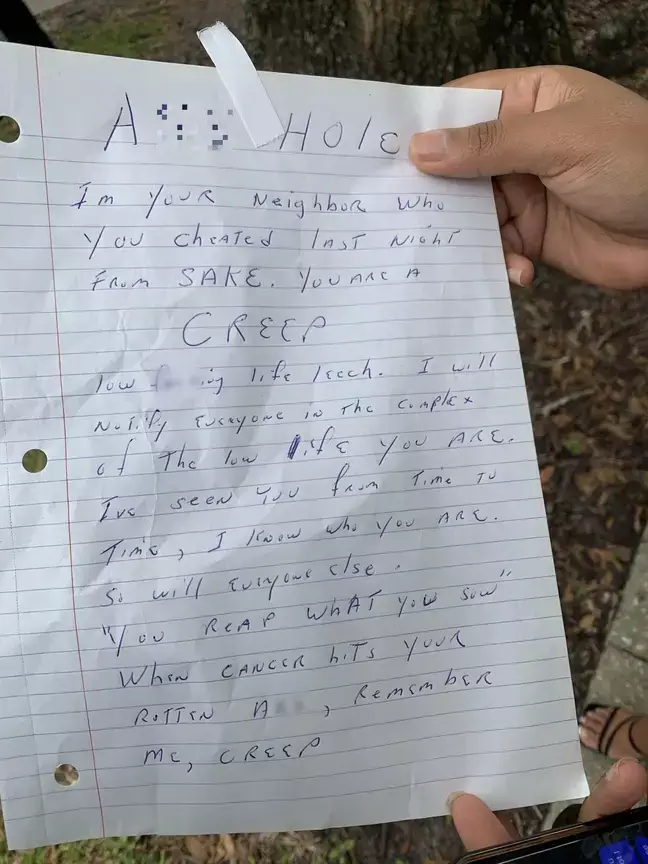 A HOLE
Im YOUR Neighbor who
YOU cheated last Night
From SAKE. YOU ARE A
CREEP
low life leech. I will
Notify Everyone in The Complex
of The low life YOU ARE.
Ive seen YOU from Time To
Time, I know who YOU ARE.
So will Everyone else.
"YOU REAP WHAT YOU SOW"
When CANCER hits YOUR
ROTTEN A , Remember
me, CREEP